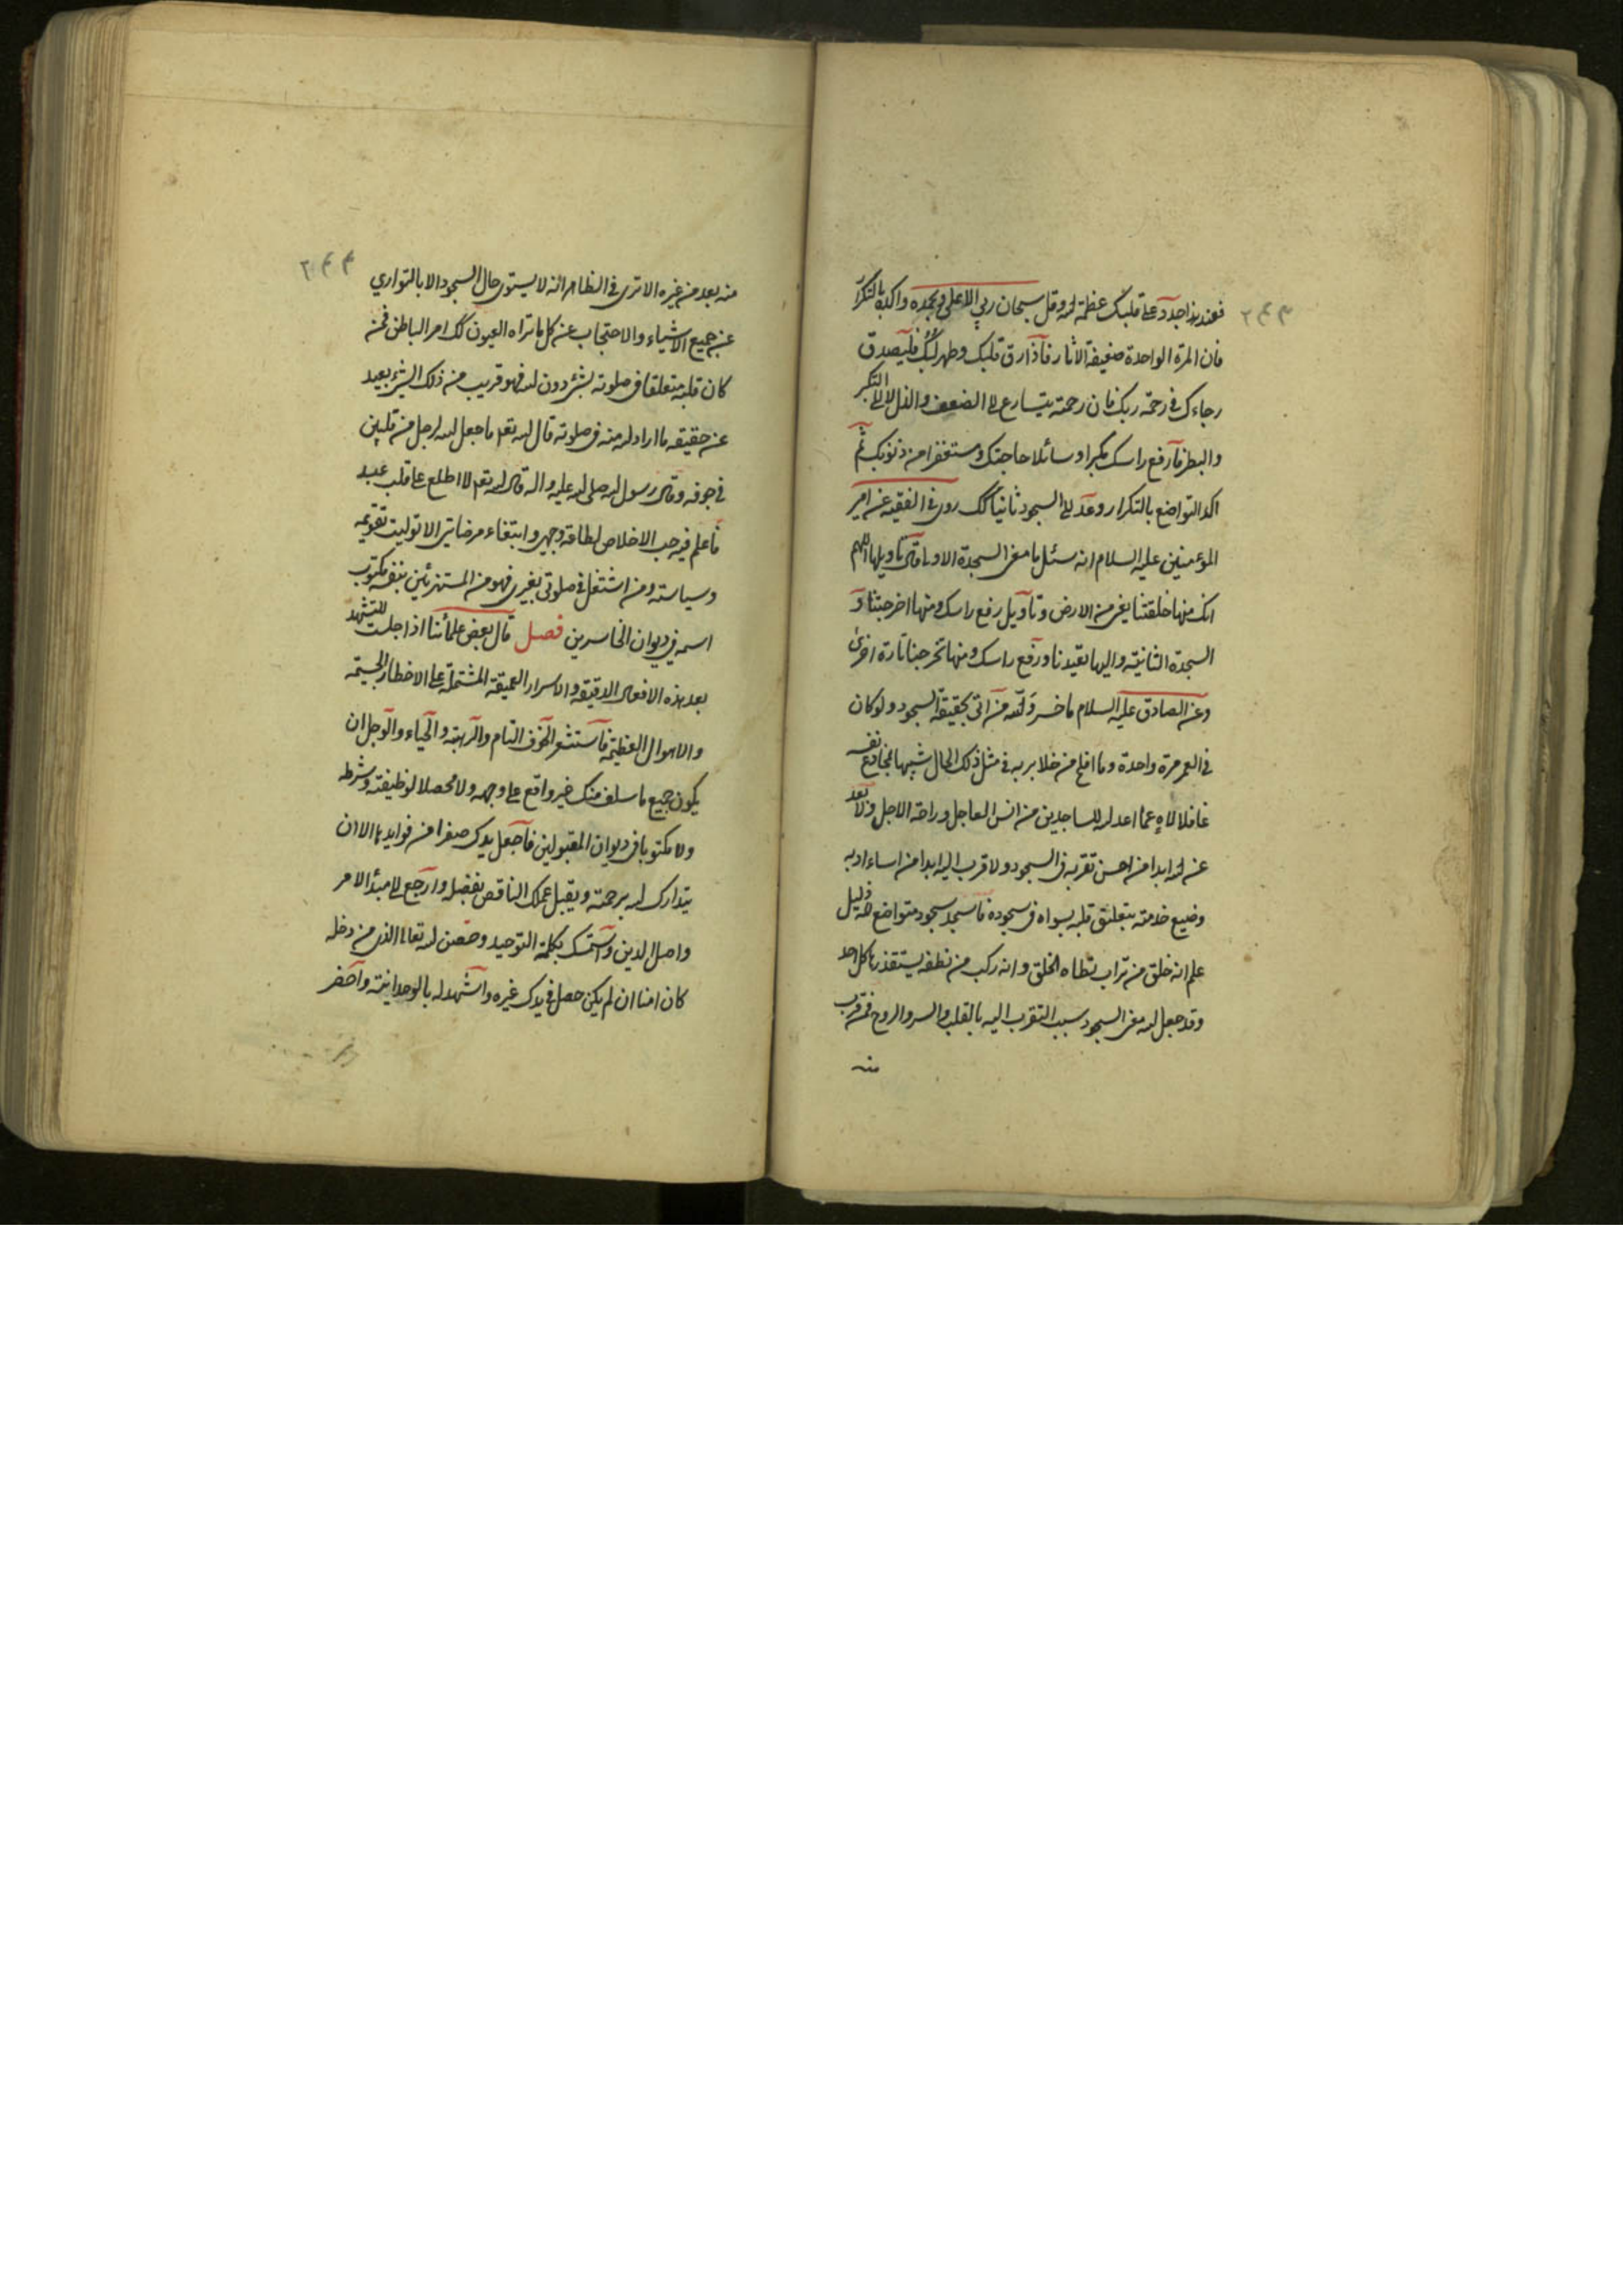 ٢٤٣
فعند هذا جدد على قلبك عظمة الله وقل سبحان ربي الاعلى وبحمده واكده بالتكرار
فان المرة الواحدة ضعيفة الاثار فاذا رق قلبك وطهر لبك فليصدق
رجاءك في رحمة ربك فان رحمته يتسارع الى الضعف والذل لا الى التكبر
والبطر فارفع راسك مكبرا وسائلا حاجتك ومستغفرا من ذنوبك ثم
اكد التواضع بالتكرار وعد الى السجود ثانيا كك روى في الفقيه عن امير
المؤمنين عليه السلام انه سئل ما معنى السجدة الاولى قال تاويلها اللهم
انك منها خلقتنا يعنى من الارض وتاويل رفع راسك ومنها اخرجتنا و
السجدة الثانية واليها تعيدنا ورفع راسك ومنها تخرجنا تارة اخرى
وعن الصادق عليه السلام ما خسر والله من اتى بحقيقة السجود ولو كان
في العمر مرة واحدة وما افلح من خلا بربه في مثل ذلك الحال شبيها بمخادع نفسه
غافلا لاه عما اعد الله للساجدين من انس العاجل وراحة الاجل ولا بعد
عن الله ابدا من احسن تقربه في السجود ولا قرب اليه ابدا من اساء ادبه
وضيع حرمته بتعليق قلبه بسواه في سجوده فاسجد سجود متواضع لله ذليل
علم انه خلق من تراب تطاه الخلق وانه ركب من نطفة يستقذرها كل احد
وقد جعل الله معنى السجود سبب التقرب اليه بالقلب والسر والروح فمن قرب
منه
٢٤٤
منه بعد من غيره الا ترى في الظاهر انه لا يستوى حال السجود الا بالتواري
عن جميع الاشياء والاحتجاب عن كل ما تراه العيون كك امر الباطن فمن
كان قلبه متعلقا في صلوته بشئ دون الله فهو قريب من ذلك الشئ بعيد
عن حقيقة ما اراد الله منه في صلوته قال الله تعم ما جعل الله لرجل من قلبين
في جوفه وقال رسول الله صلى الله عليه واله قال الله تعم لا اطلع على قلب عبد
فاعلم فيه حب الاخلاص لطاعة وجهى وابتغاء مرضاتى الا توليت تقويمه
وسياسته ومن اشتغل في صلوتى بغيرى فهو من المستهزئين بنفسه مكتوب
اسمه في ديوان الخاسرين فصل قال بعض علمائنا اذا جلست للتشهد
بعد هذه الافعال الدقيقة والاسرار العميقة المشتملة على الاخطار الجسيمة
والاهوال العظيمة فاستشعر الخوف التام والرهبة والحياء والوجل ان
يكون جميع ما سلف منك غير واقع على وجهه ولا محصلا لوظيفته وشرطه
ولا مكتوبا في ديوان المقبولين فاجعل يدك صفرا من فوايدها الا ان
يتدارك الله برحمته ويقبل عملك الناقص بفضله وارجع الى مبدأ الامر
واصل الدين واستمسك بكلمة التوحيد وحصن الله تعالى الذى من دخله
كان امنا ان لم يكن حصل في يدك غيره واشهد له بالوحدانية واحضر